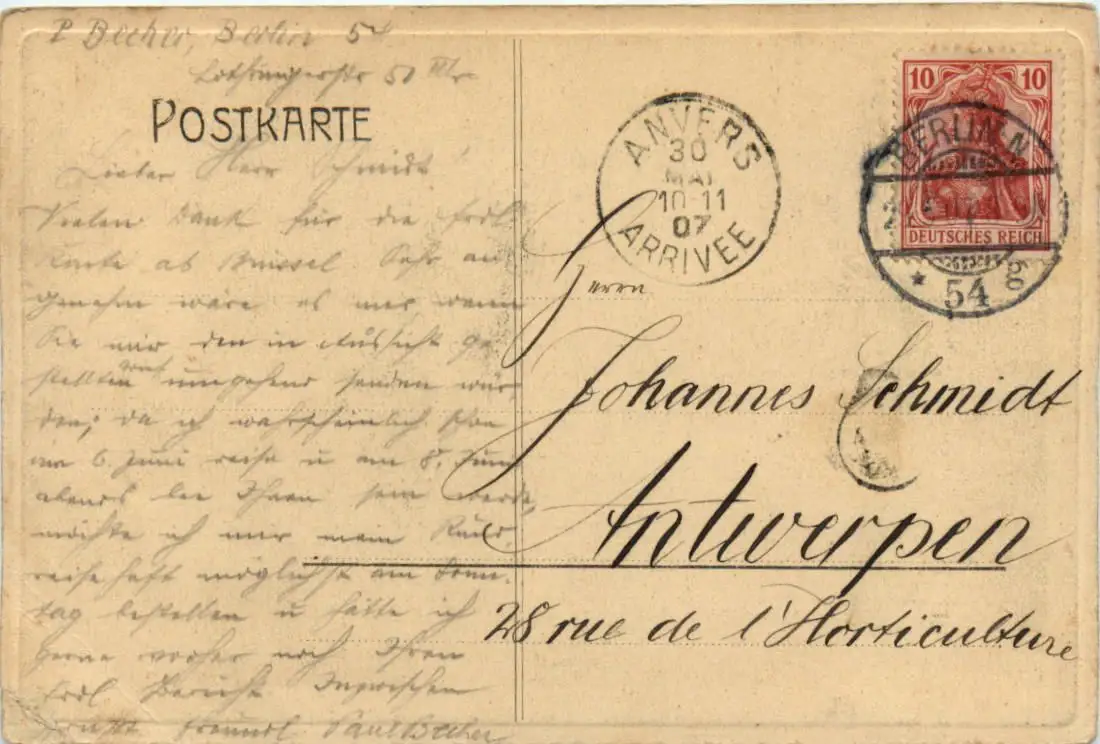 P Becher, Berlin 54
Lothringerstr 50 III r
POSTKARTE
Lieber Herr Schmidt
Vielen Dank für die frdl
Karte ab Brüssel. Sehr an
genehm wäre es mir, wenn
Sie mir den in Aussicht ge
stellten umgehend senden wür
den; da ich wahrscheinlich schon
am 6. Juni reise u am 8. Juni
abends bei Ihnen sein werde,
möchte ich mir mein Rund
reiseheft möglichst am Sonn
tag bestellen u hätte ich
gerne vorher noch Ihren
frdl Bericht. Inzwischen
grüßt freundl Paul Becher
ANVERS
30
MAI
10-11
07
ARRIVEE
10 10
DEUTSCHES REICH
BERLIN N
* 54 g
Herrn
Johannes Schmidt
Antwerpen
28 rue de l'Horticulture